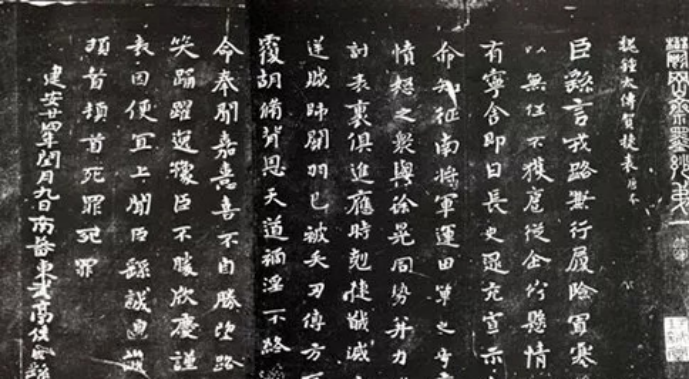 鬱岡齋墨妙第一
魏鍾太傅賀捷表唐本
臣繇言戎路兼行履險冒寒
以無任不獲扈從企佇懸情
有寧舍即日長史逯充宣示
命知征南將軍運田單之奇
憤怒之衆與徐晃同勢并力
討表裏俱進應時剋捷馘滅
逆賊帥關羽已被矢刃傅方
覆胡脩背恩天道禍淫不終
命奉聞嘉憙喜不自勝望路
笑踊躍逸豫臣不勝欣慶謹
表因便宜上聞臣繇誠惶誠
頓首頓首死罪死罪
建安廿四年閏月九日南蕃東武亭侯臣繇